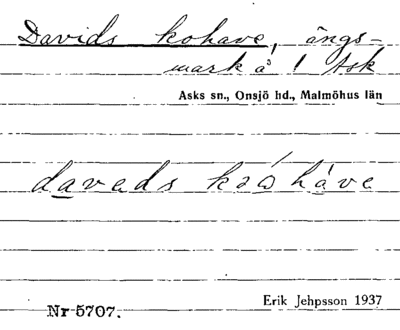 Davids kohave, ängs-
mark å 1 Ask
Asks sn., Onsjö hd., Malmöhus län
daveds
Erik Jehpsson 1937
Nr 5707.